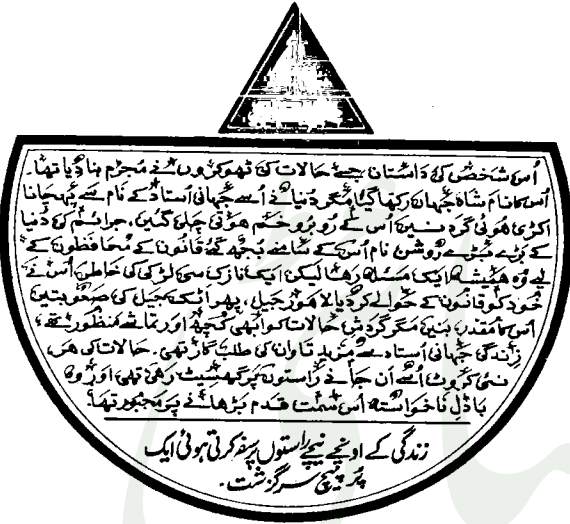 اُس شخص کی داستان جسے حالات کی ٹھوکروں نے مُجرم بنا دیا تھا۔
اُس کا نام شاہ جہان رکھا گیا مگر دُنیا نے اُسے جہانی اُستاد کے نام سے پہچانا
اکڑی ہوئی گردنیں اُس کے رُوبرو خم ہوتی چلی گئیں، جرائم کی دُنیا
کے بڑے بڑے روشن نام اُس کے سامنے بُجھ گئے قانون کے محافظوں کے
لیے وُہ ہمیشہ ایک مسئلہ رھا لیکن ایک نازک سی لڑکی کی خاطر اُس نے
خُود کو قانون کے حوالے کر دیا لاھور جیل، پھر اٹک جیل کی صعُوبتیں
اس کا مُقدر بنیں مگر گردشِ حالات کو ابھی کُچھ اور تماشے منظور تھے،
زندگی جہانی اُستاد سے مزید تاوان کی طلب گار تھی۔ حالات کی ھر
نئی کروٹ اُسے اَن جانے راستوں پر گھسیٹ رھی تھی اور وہ
بادلِ ناخواستہ اُس سمت قدم بڑھانے پر مجبُور تھا۔
زندگی کے اونچے نیچے راستوں پر سفر کرتی ہوئی ایک
پُر پیچ سرگزشت۔